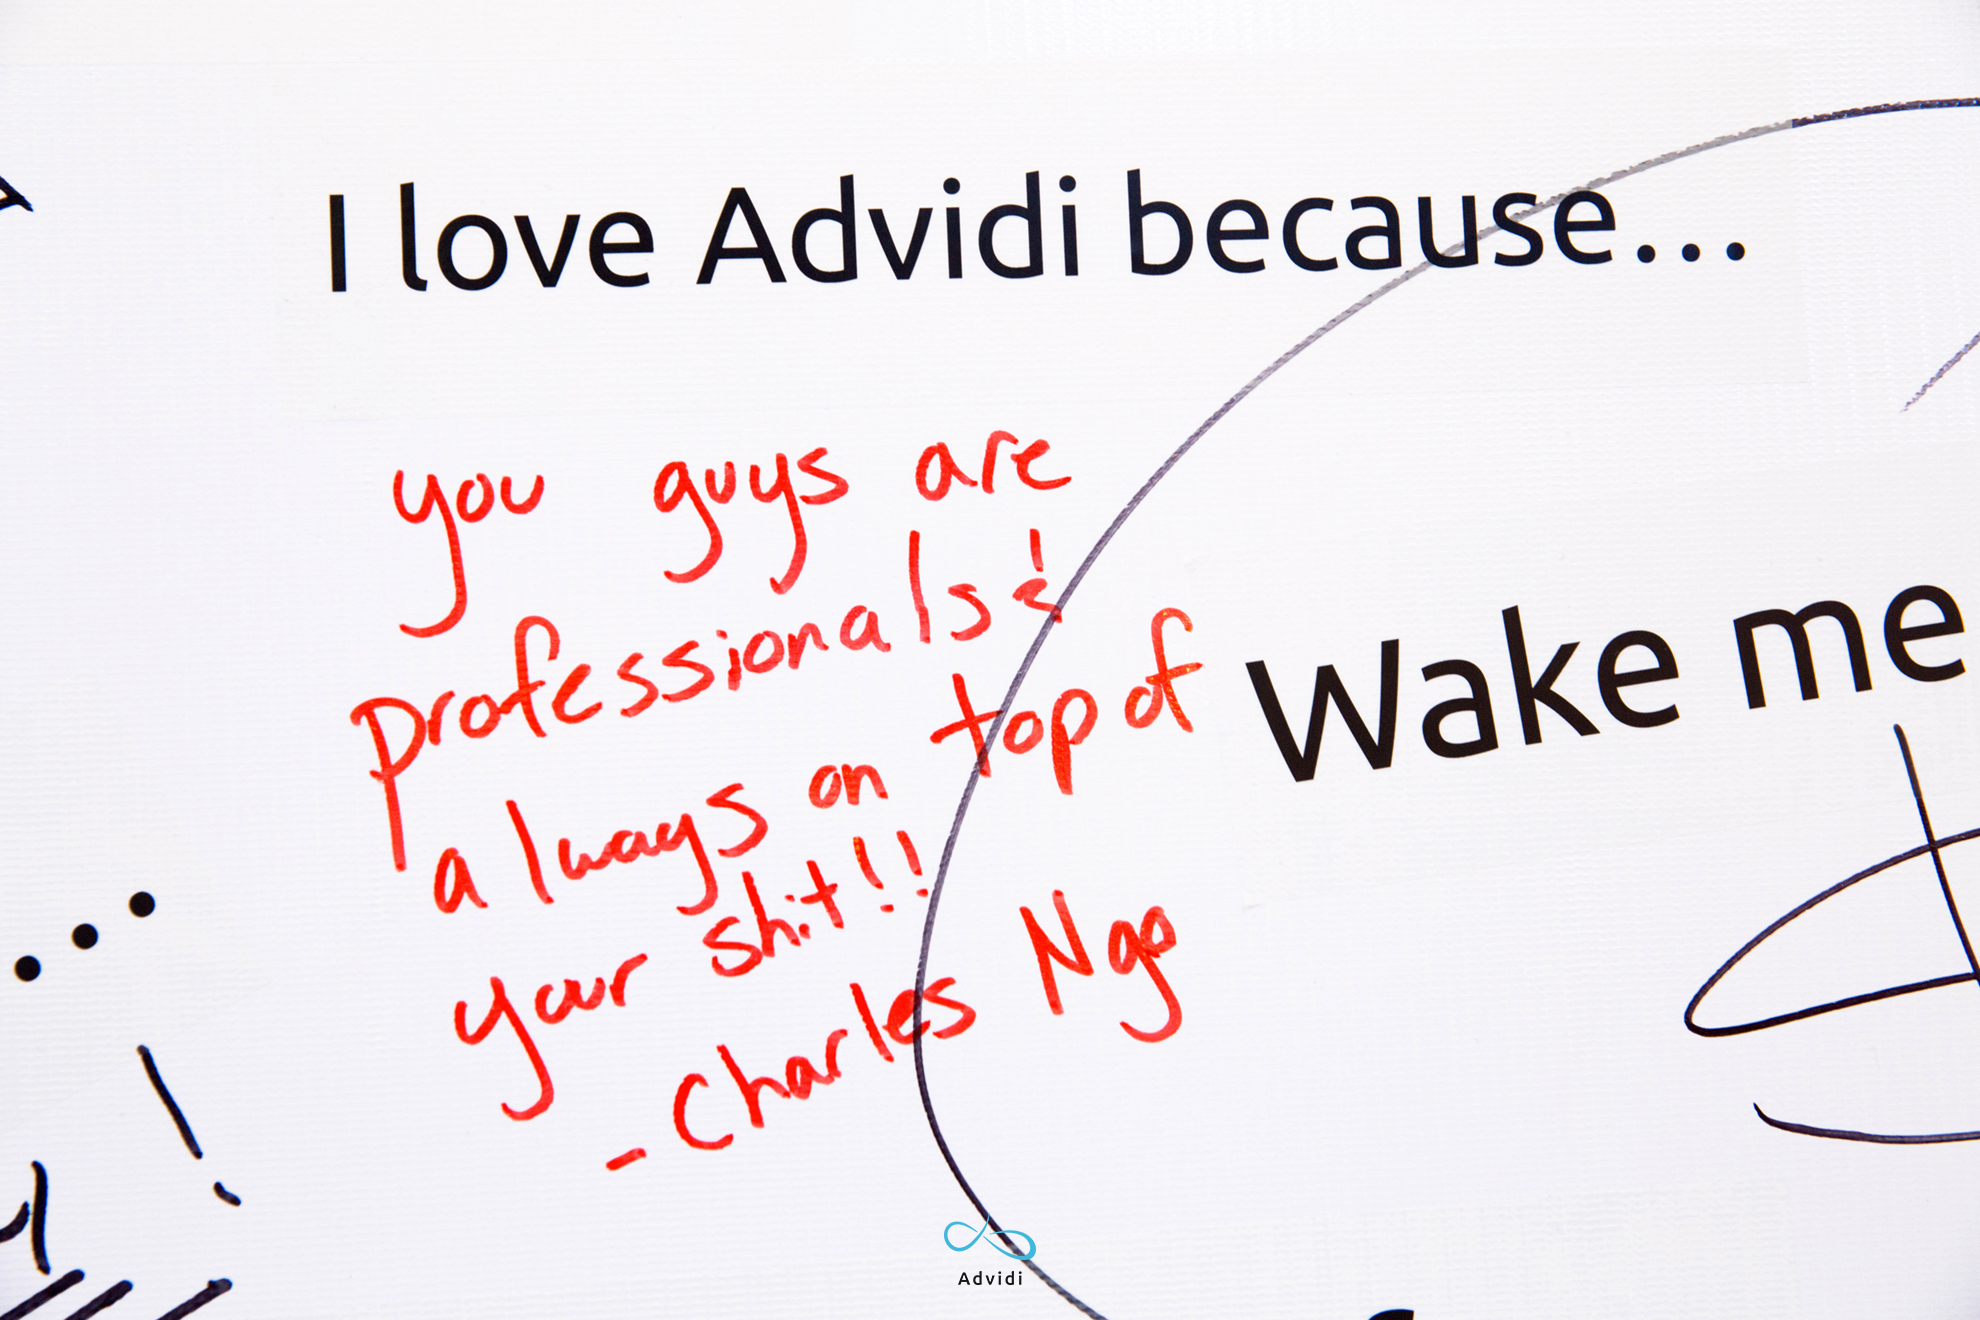 I love Advidi because...
you guys are
professionals &
always on top of
your shit!!
- Charles Ngo
Wake me
...
!
Advidi